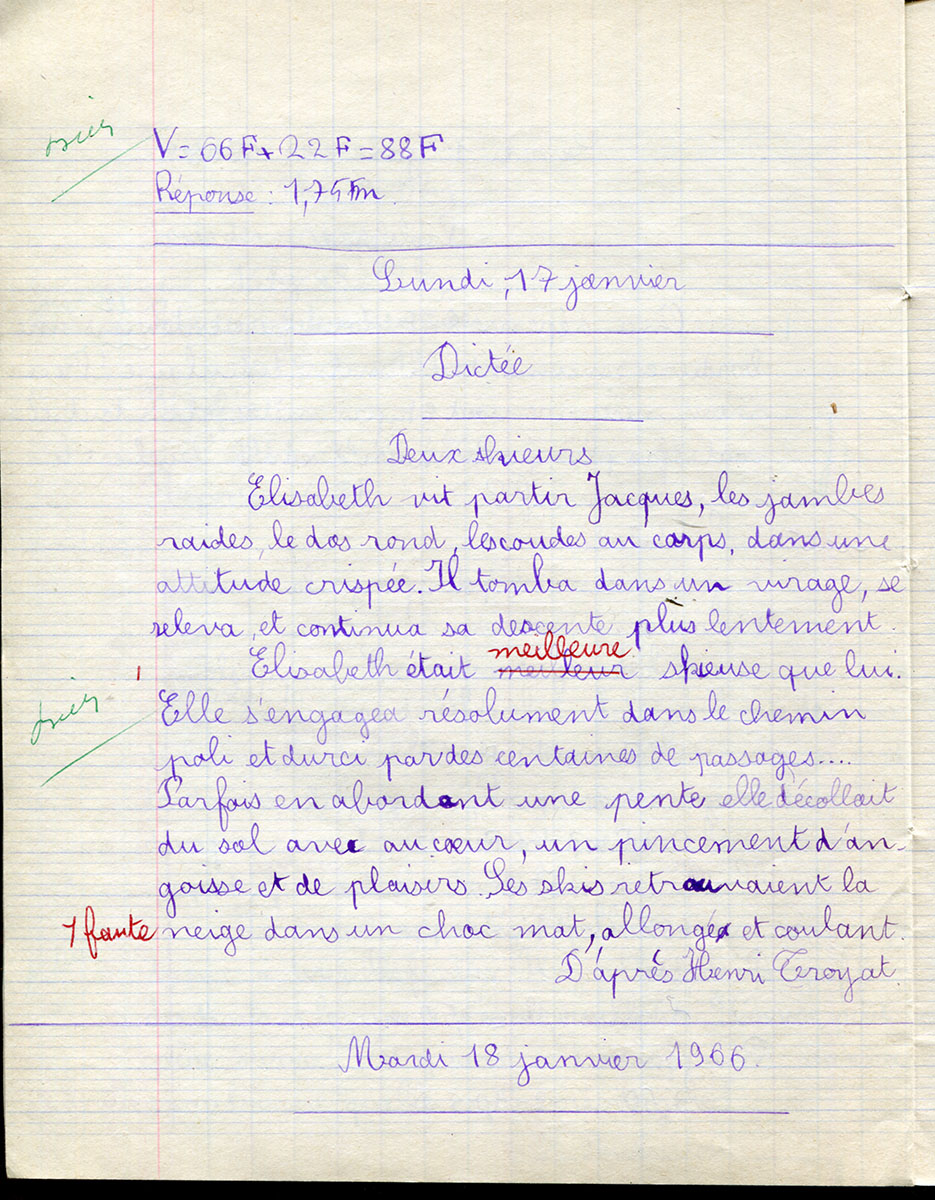 V = 66 F + 22 F = 88 F
Réponse : 1,75 Fm.
Lundi, 17 janvier
Dictée
Deux skieurs
Elisabeth vit partir Jacques, les jambes
raides, le dos rond, les coudes au corps, dans une
attitude crispée. Il tomba dans un virage, se
releva, et continua sa descente plus lentement.
meilleure
Elisabeth était meilleur skieuse que lui.
Elle s'engagea résolument dans le chemin
poli et durci par des centaines de passages....
Parfois en abordant une pente elle décollait
du sol avec au cœur, un pincement d'an-
goisse et de plaisirs. Ses skis retrouvaient la
1 faute neige dans un choc mat, allongé et coulant.
D'après Henri Troyat
Mardi 18 janvier 1966.